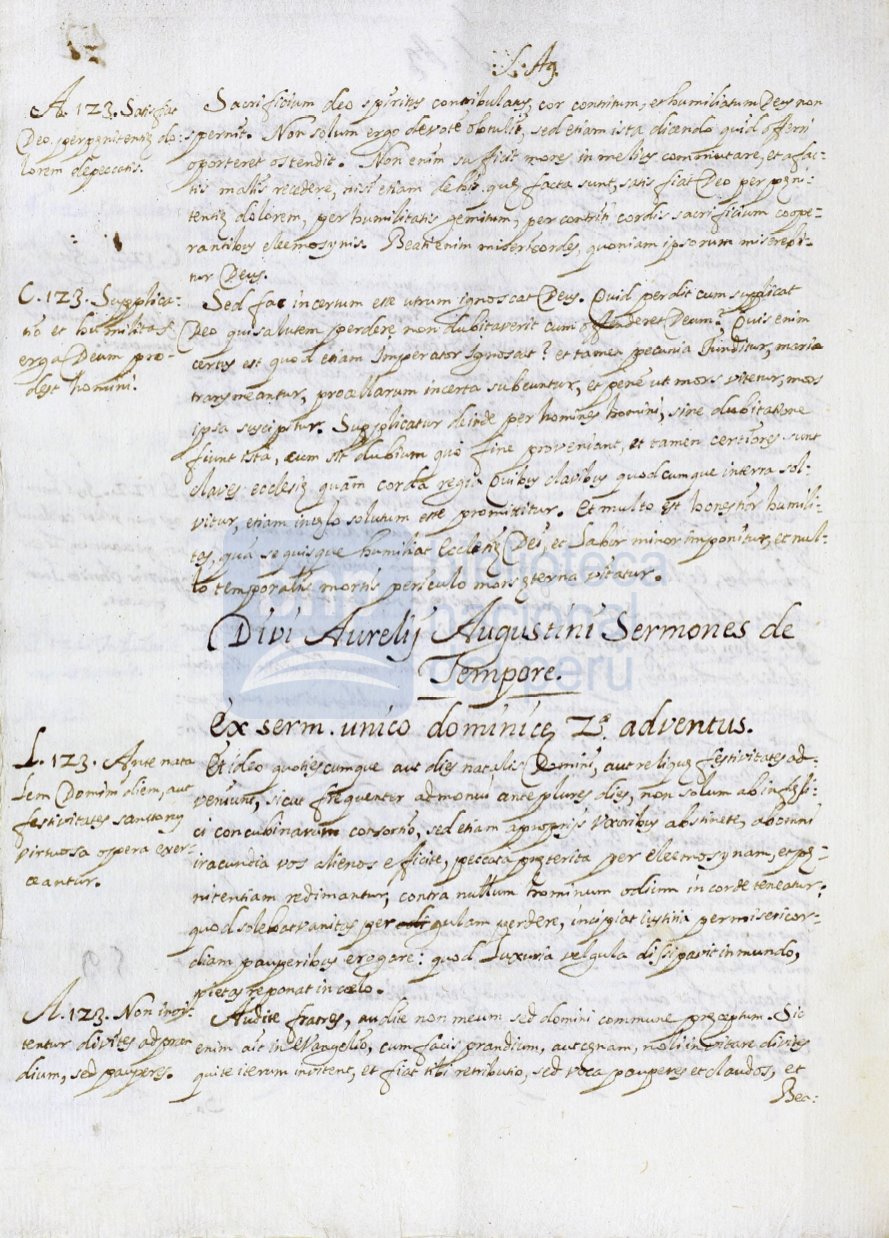 S. Ag.
A. 123. Satisfiat
Deo per penitentię do-
lorem de peccatis.
Sacrificium deo spiritus contribulatus, cor contritum, et humiliatum Deus non
spernit. Non solum ergo devote obtulit, sed etiam ista dicendo quid offerri
oporteret ostendit. Non enim sufficit mores in melius commutare, et a fac-
tis malis recedere, nisi etiam de his, quę facta sunt, satis fiat Deo per pęni-
tentię dolorem, per humilitatis gemitum, per contriti cordis sacrificium coope-
rantibus eleemosynis. Beati enim misericordes, quoniam ipsorum miserebi-
tur Deus.
C. 123. Supplica-
tio et humilitas
erga Deum pro-
dest homini.
Sed fac incertum esse utrum ignoscat Deus. Quid perdit cum supplicat
Deo qui salutem perdere non dubitaverit cum offenderet Deum? Quis enim
certus est quod etiam Imperator ignoscat? et tamen pecunia funditur, maria
transmeantur, procellarum incerta subeuntur, et penè ut mors vitetur, mors
ipsa suscipitur. Supplicatur deinde per homines homini, sine dubitatione
fiunt ista, cum sit dubium quo fine proveniant, et tamen certiores sunt
claves ecclesię quàm corda regũ Quibus clavibus quodcumque in terra sol-
vitur, etiam in cęlo solutum esse promittitur. Et multo est honestior humili-
tas, qua se quisque humiliat Ecclesię Dei, et labor minor imponitur, et nul-
lo temporalis mortis periculo mors ęterna vitatur.
Divi Aurelij Augustini Sermones de
Tempore.
Ex serm. unico dominicę 2ę. adventus.
L. 123. Ante nata
lem Domini diem, aut
festivitates sanctorũ
virtuosa opera exer-
ceantur.
Et ideo quotiescumque aut dies natalis Domini, aut reliquę festivitates ad-
veniunt, sicut frequenter admonui ante plures dies, non solum ab infęlici-
ci concubinarum consortio, sed etiam a proprijs vxoribus abstinete, ab omni
iracundia vos alienos efficite, peccata pręterita per eleemosynam, et pę-
nitentiam redimantur, contra nullum hominum odium in corde teneatur:
quod solebat vanitas per gulam perdere, incipiat iustitia per misericor-
diam pauperibus erogare: quod Luxuria vel gula dissipavit in mundo,
pietas reponat in cœlo.
A. 123. Non invi-
tentur divites ad pran
dium, sed pauperes.
Audite fratres, audite non meum sed domini commune pręceptum. Sic
enim ait in Evangelio, cum facis prandium, aut cęnam, noli invitare divites
qui te iterum invitent, et fiat tibi retributio, sed voca pauperes et claudos, et
Bea:
biblioteca
nacional
del perú